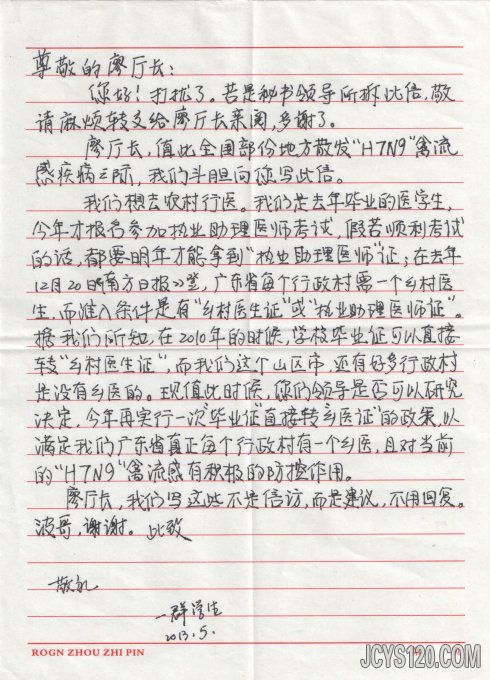 尊敬的廖厅长：
您好！打扰了。若是秘书领导所拆此信，敬
请麻烦转交给廖厅长亲阅，多谢了。
廖厅长，值此全国部份地方散发“H7N9”禽流
感疾病之际，我们斗胆向您写此信。
我们想去农村行医。我们是去年毕业的医学生，
今年才报名参加执业助理医师考试，假若顺利考试
的话，都要明年才能拿到“执业助理医师”证；在去年
12月20日南方日报登，广东省每个行政村需一个乡村医
生，而准入条件是有“乡村医生证”或“执业助理医师证”。
据我们所知，在2010年的时候，学校毕业证可以直接
转“乡村医生证”，而我们这个山区市，还有好多行政村
是没有乡医的。现值此时候，您们领导是否可以研究
决定，今年再实行一次“毕业证”直接转“乡医证”的政策，以
满足我们广东省真正每个行政村有一个乡医，且对当前
的“H7N9”禽流感有积极的防控作用。
廖厅长，我们写这些不是信访，而是建议，不用回复。
波哥，谢谢。此致
敬礼
一群学生
2013.5.
ROGN ZHOU ZHI PIN
JCYS120.COM